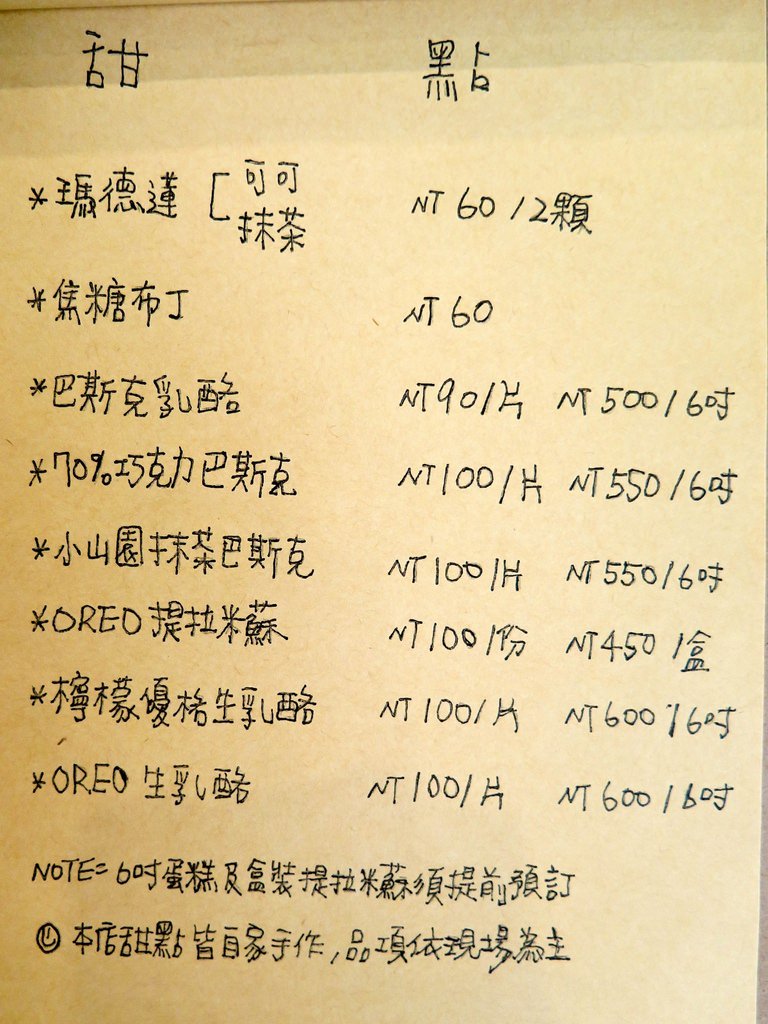 甜 點
*瑪德蓮 [可可 NT 60 / 2顆
抹茶
*焦糖布丁 NT 60
*巴斯克乳酪 NT90/片 NT 500/6吋
*70%巧克力巴斯克 NT100/片 NT550/6吋
*小山園抹茶巴斯克 NT100/片 NT550/6吋
*OREO 提拉米蘇 NT100/份 NT450/盒
*檸檬優格生乳酪 NT100/片 NT600/6吋
*OREO 生乳酪 NT100/片 NT600/6吋
NOTE= 6吋蛋糕及盒裝提拉米蘇須提前預訂
☺ 本店甜點皆自家手作,品項依現場為主